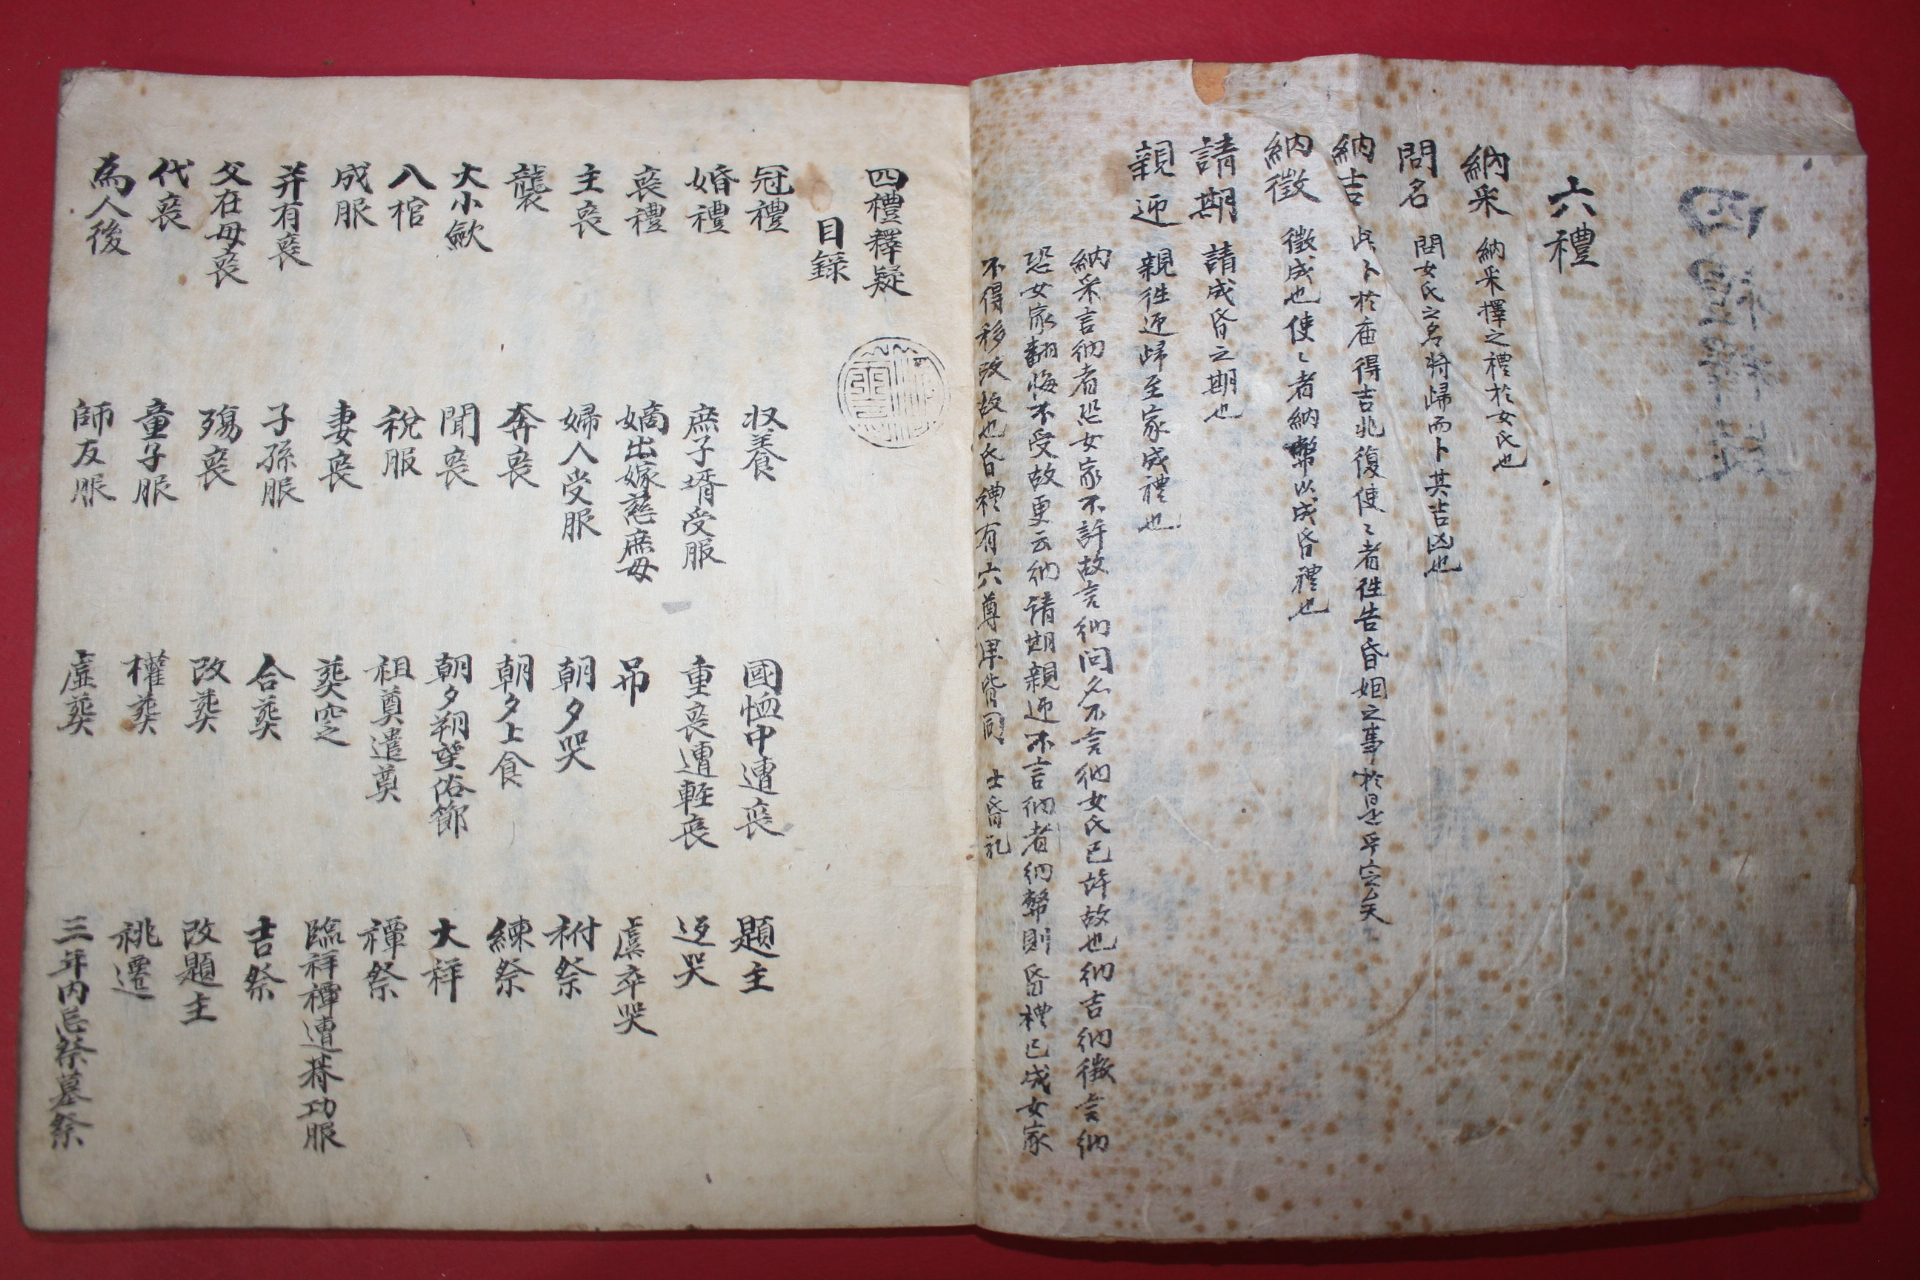 六禮
納采 納采擇之禮於女氏也
問名 問女氏之名將歸而卜其吉凶也
納吉 此卜於庙得吉兆復使〻者徃告昏姻之事於是乎定矣
納徵 徵成也使〻者納幣以成昏禮也
請期 請成昏之期也
親迎 親徃迎歸至家成禮也
納采言納者恐女家不許故言納问名不言納女氏已許故也納吉納徵言納
恐女家翻悔不受故更云納请期親迎不言納者納幣則昏禮已成女家
不得移改故也昏禮有六尊卑皆同 士昏礼
四禮釋疑
目録
冠禮
婚禮
喪禮
主喪
襲
大小歛
入棺
成服
并有喪
父在母喪
代喪
為人後
収養
庶子壻受服
嫡出嫁慈庶母
婦人受服
奔喪
聞喪
稅服
妻喪
子孫服
殤喪
童子服
師友服
國恤中遭喪
重喪遭輕喪
吊
朝夕哭
朝夕上食
朝夕朔望俗節
祖奠遣奠
葬窆
合葬
改葬
權葬
虛葬
題主
返哭
虞卒哭
祔祭
練祭
大祥
禫祭
臨祥禫遭朞功服
吉祭
改題主
祧遷
三年内忌祭墓祭